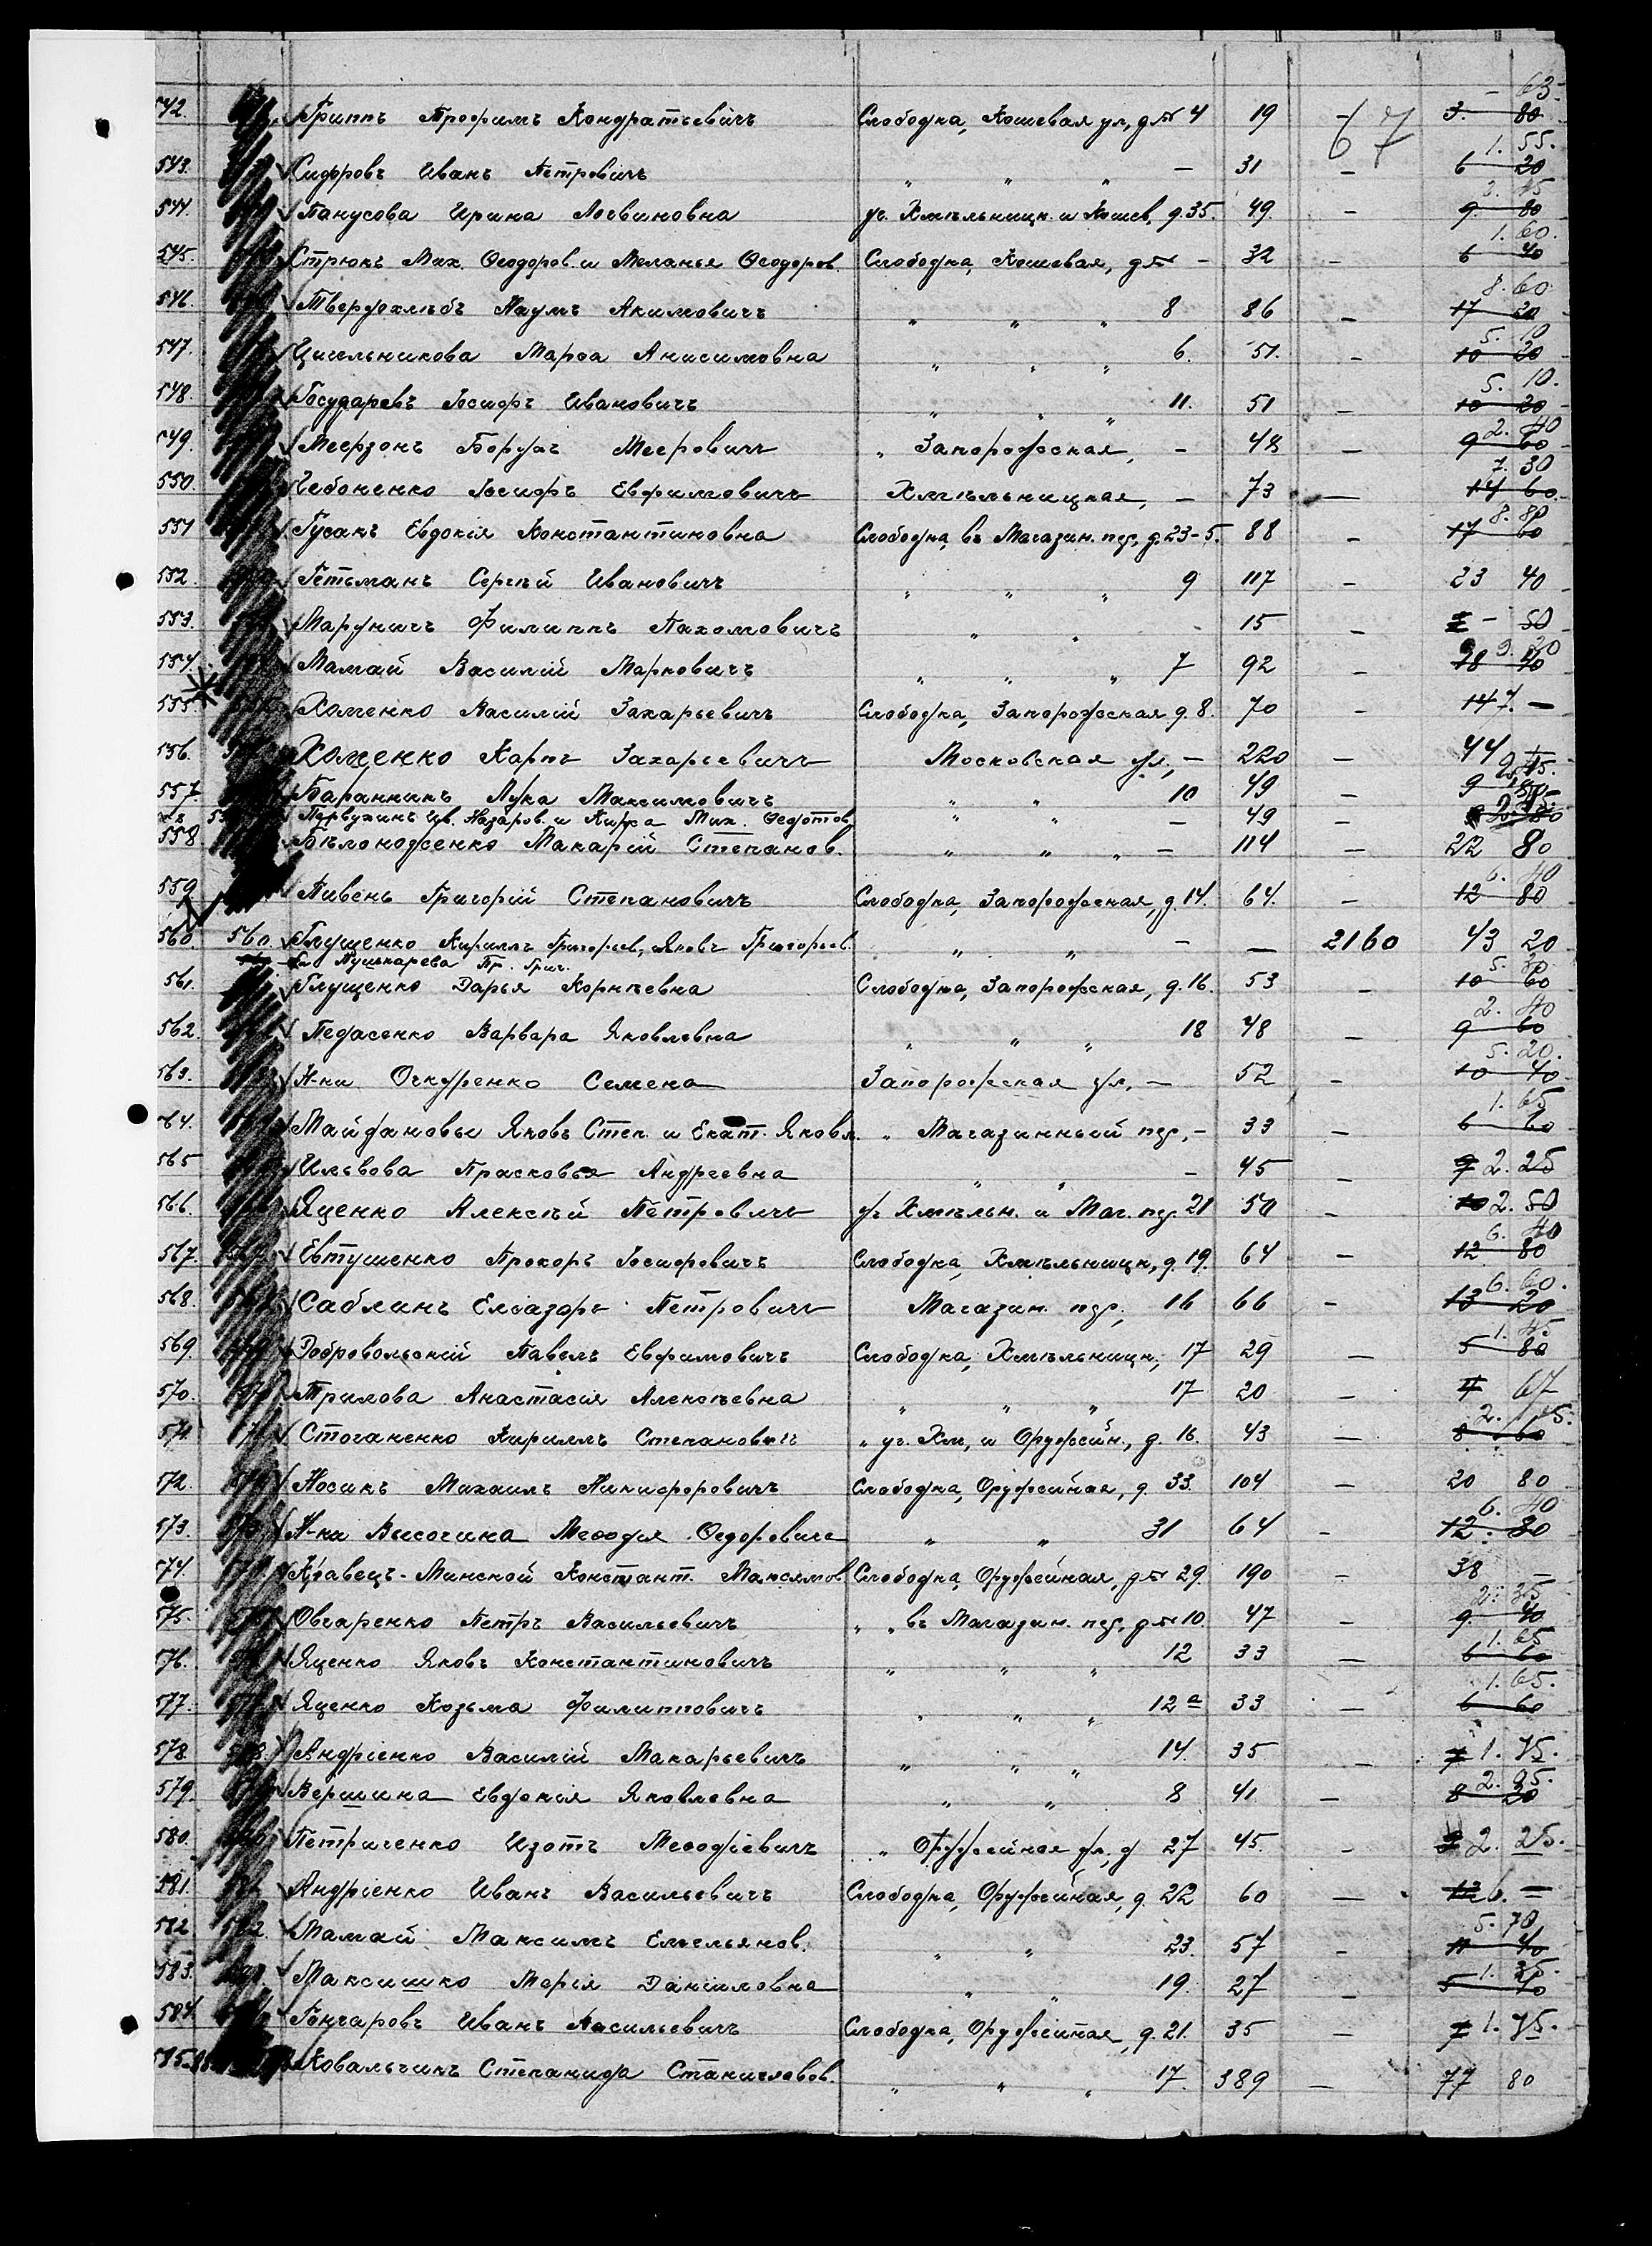 67
542. Гриппъ Трофимъ Кондратьевичъ Слободка, Кошевая ул, д № 4 19 - 3. 80 - 63
543. Сидоровъ Иванъ Петровичъ " " " - 31 - 6 20 1. 55.
544. Панусова Ирина Логвиновна уг. Хмѣльницк. и Кошев, д. 35. 49. - 9. 80 2. 45
545. Стрюкъ Мих. Ѳеодоров. и Меланья Ѳеодоров. Слободка, Кошевая, д № - 32 - 6 40 1. 60.
546. Твердохлѣбъ Наумъ Акимовичъ " " " 8 86 - 17 20 8. 60
547. Цигельникова Марѳа Анисимовна " " " 6. 51. - 10 20 5. 10
548. Государевъ Іосифъ Ивановичъ " " " 11. 51 - 10 20 5. 10.
549. Меерзонъ Борухъ Мееровичъ " Запорожская, - 48 - 9 60 2. 40
550. Чебоненко Іосифъ Евфимовичъ Хмѣльницкая, - 73 - 14 60 7. 30
551 Гусакъ Евдокія Константиновна Слободка, въ Магазин. пер, д. 23-5. 88 - 17 60 8. 80
552. Гетьманъ Сергѣй Ивановичъ " " " 9 117 - 23 40
553. Маруничъ Филиппъ Пахомовичъ " " - 15 - - 50
554. Мамай Василій Марковичъ " " " 7 92 - 18 40 9. 20
555. Хоменко Василій Захарьевичъ Слободка, Запорожская д. 8. 70 - 14 7. -
556. Хоменко Карпъ Захарьевичъ Московская ул, - 220 - 44
557. Баранникъ Лука Максимовичъ " " 10 49 - 9 2. 45.
Первухинъ Ив. Назаров. и Мих. Ѳедотов. " " - 49 -
558 Бѣлоноженко Макарій Степанов. " " " - 114 - 22 80
559 Пивень Григорій Степановичъ Слободка, Запорожская, д. 14. 64. - 12 80 6. 40
560. 560. Глущенко Кириллъ Григорьев, Яковъ Григорьев. " " - - 2160 43 20
Пушкарева Пр. Григ.
561. Глущенко Дарья Корнѣевна Слободка, Запорожская, д. 16. 53 - 10 60 5. 30
562. Педасенко Варвара Яковлевна " " " 18 48 - 9 60 2. 40
563. Н-ки Очкуренко Семена Запорожская ул, - 52 - 10 40 5. 20.
564. Майдановы Яковъ Степ. и Екат. Яковл. " Магазинный пер, - 33 - 6 60 1. 65
565 Ильвова Прасковья Андреевна " " - 45 - 9 2. 25
566. Яценко Алексѣй Петровичъ уг Хмѣльн. и Маг. пер. 21 50 - 10 2. 50
567. Евтушенко Прохоръ Іосифовичъ Слободка, Хмѣльницк, д. 19. 64 - 12 80 6. 40
568. Саблинъ Елеазаръ Петровичъ Магазин. пер, 16 66 - 13 20 6. 60.
569. Добровольскій Павелъ Евфимовичъ Слободка, Хмѣльницк, 17 29 - 5 80 1. 45.
570. Трилова Анастасія Алексѣевна " " " 17 20 - 4 67
571 Стоганенко Кириллъ Степановичъ " уг. Хм, и Оружейн., д. 16. 43 - 8 60 2. 15.
572. Носикъ Михаилъ Никифоровичъ Слободка, Оружейная, д. 33. 104 - 20 80
573. Н-ки Высочина Меѳодія Ѳедоровича " " 31 64 - 12. 80 6. 40
574. Кравецъ-Минской Констант. Максимов. Слободка, Оружейная, д № 29. 190 - 38 -
575. Овчаренко Петръ Васильевичъ " " въ Магазин. пер, д № 10. 47 - 9. 40 2. 35
576. Яценко Яковъ Константиновичъ " " " 12 33 - 6 60 1. 65
577. Яценко Козьма Филипповичъ " " " 12 а 33 - 6 60 1. 65.
578. Андріенко Василій Макарьевичъ " " " 14. 35 - 7 1. 75.
579. Вершина Евдокія Яковлевна " " 8 41 - 8 20 2. 05.
580. Петриченко Изотъ Меѳодіевичъ " Оружейная ул, д 27 45. - 9 2. 25.
581. Андріенко Иванъ Васильевичъ Слободка, Оружейная, д. 22 60 - 12 6. -
582 Мамай Максимъ Емельянов. " " 23. 57 - 11 40 5. 70
583. Максишко Марія Даниловна " " 19. 27 - 5 40 1. 35.
584. Гончаровъ Иванъ Васильевичъ Слободка, Оружейная, д. 21. 35 - 7 1. 75.
585. Ковальчикъ Степанида Станиславов. " " " 17. 389 - 77 80